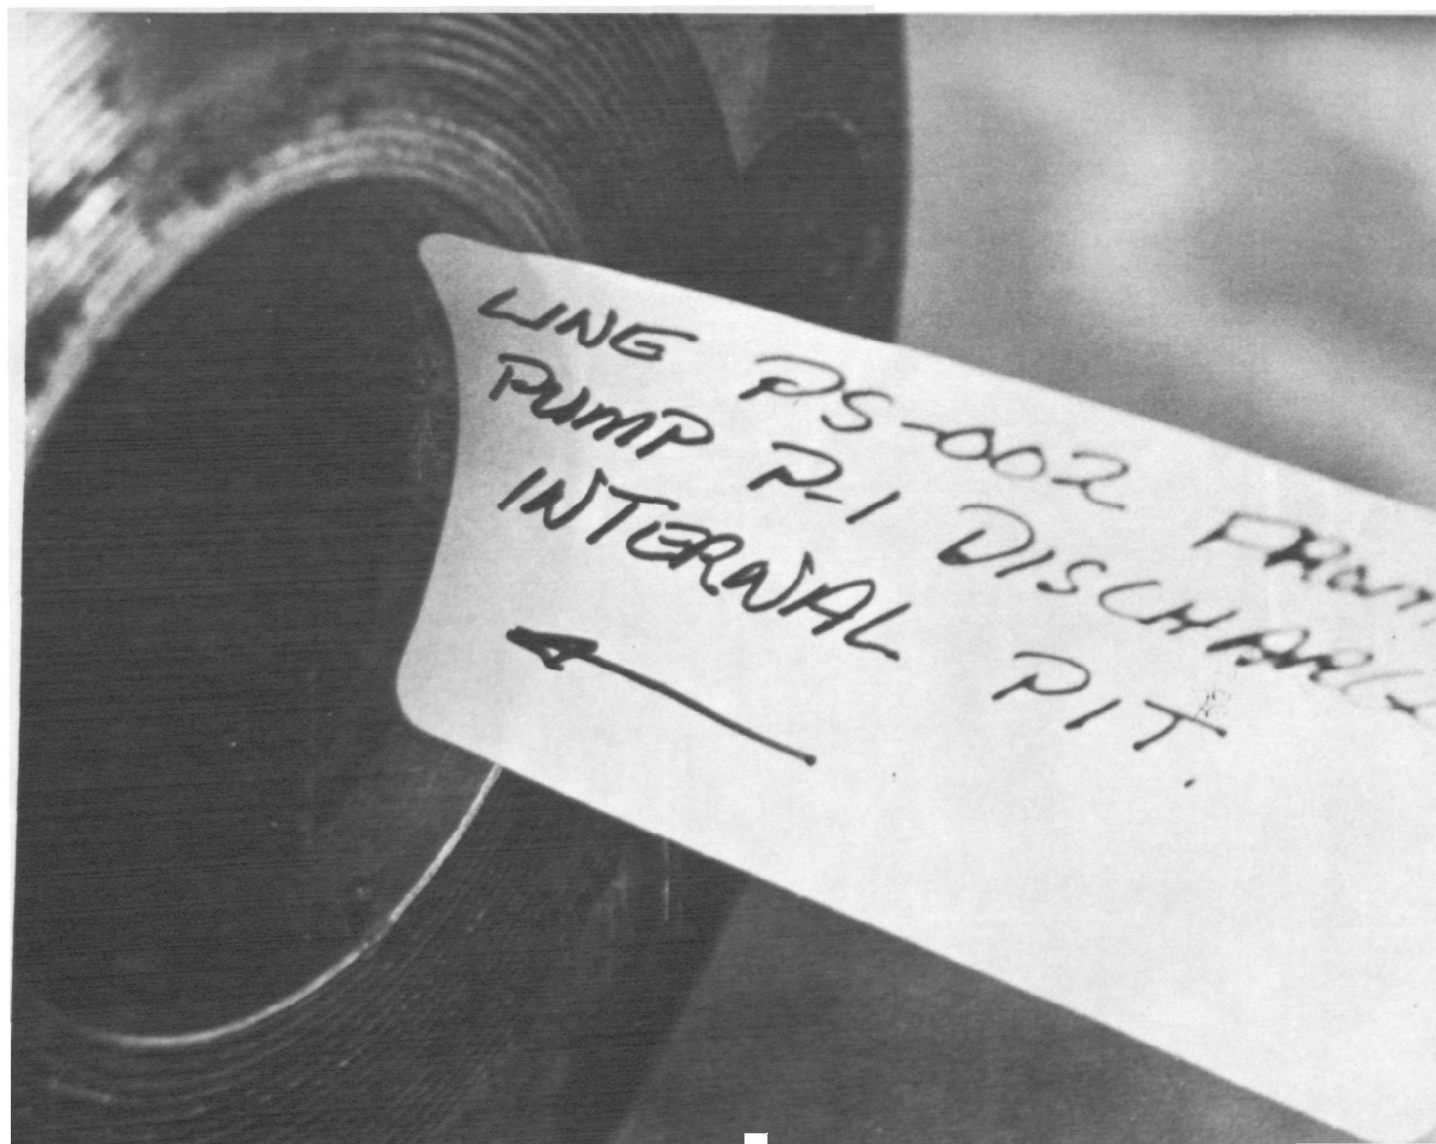 LINE PS-002 FROM
PUMP P-1 DISCHARG
INTERNAL PIT.